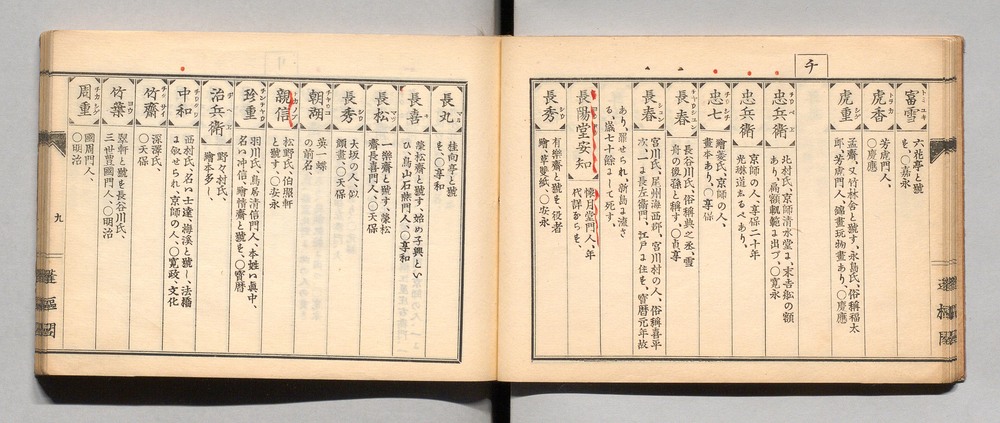 チ
富雪
六花亭と號
を、〇嘉永
虎香
芳虎門人、
〇慶應
虎重
孟齋、又竹林舎と號す、永島氏、俗稱福太
郎、芳虎門人、錦畫玩物畫あり、〇慶應
忠兵衛
北村氏、京師清水堂に、末吉舩の額
あり、扁額軌範に出づ、〇寛永
忠兵衛
京師の人、享保二十年
光琳道
忠七
繪菱氏、京師の人、
畫本あり、〇享保
長春
長谷川氏、俗稱典之丞、雪
舟の後孫と稱す、〇貞享
長春
宮川氏、尾州海西郡、宮川村の人、俗稱喜平
次、一に長左衛門、江戸に住を、寶暦元年故
あり、罪せられ、新島に流さ
る、歳七十餘にして死す、
長陽堂安知
懐月堂門人、年
代詳
長秀
有樂齋と號を、役者
繪、草雙紙、〇安永
長丸
桂向亭と號
を、〇享和
長喜
榮松齋と號す、始め子興とい
ひ、鳥山石燕門人、〇享和
長松
一樂齋と號す、榮松
齋長喜門人、〇天保
長秀
大坂の人、似
顔畫、〇天保
朝湖
英一蝶
の前名
親信
松野氏、伯照軒
と號す、〇安永
珍重
羽川氏、鳥居清信門人、本姓は眞中、
名は冲信、繪情齋と號を、〇寶暦
治兵衛
野々村氏、
繪本多
中和
西村氏、名は士達、梅溪と號し、法橋
に叙せられ、京師の人、〇寛政、文化
竹齋
深澤氏、
〇天保
竹葉
翠軒と號を長谷川氏、
三世豊國門人、〇明治
周重
國周門人、
〇明治
九